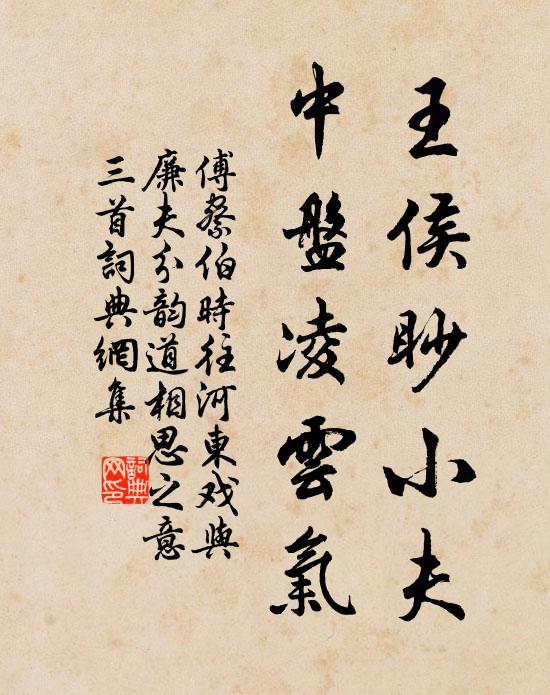 王侯眇小夫
中盤凌雲氣
傅祭伯時往河東戏與
廉夫分韵道相思之意
三首詞典網集
詞典
网印